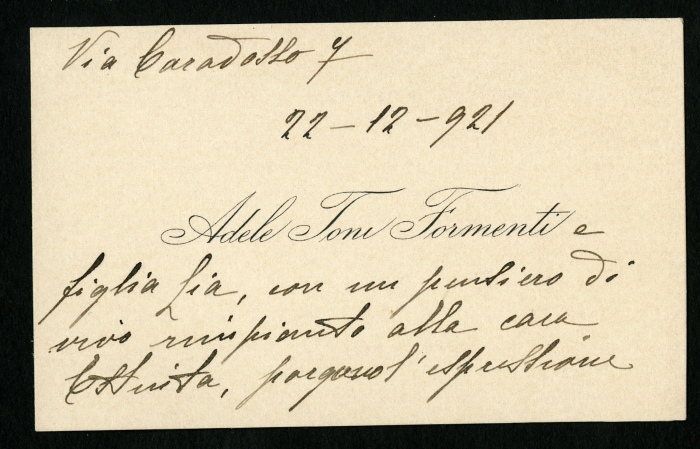 Via Caradosso 7
22-12-921
Adele Toni Formenti e
figlia Lia, con un pensiero di
vivo rimpianto alla cara
Estinta, porgono l'espressione